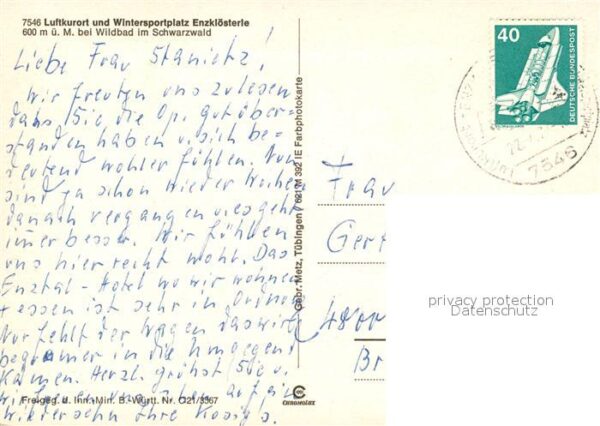 7546 Luftkurort und Wintersportplatz Enzklösterle
600 m ü. M. bei Wildbad im Schwarzwald
Liebe Frau Stanietz!
Wir freuten uns zu lesen
dass Sie die Op. gut über-
standen haben u. sich be-
deutend wohler fühlen. Nun
sind ja schon wieder Wochen
danach vergangen u. es geht
immer besser. Wir fühlen
uns hier recht wohl. Das
Enztal-Hotel wo wir wohnen
+ essen ist sehr in Ordnung
Nur fehlt der Wagen dass wir
bequemer in die Umgegend
kämen. Herzl. grüßt Sie u.
wir freuen uns auf ein
Wiedersehn Ihre Königs.
Freigeg. d. Inn.-Min. B.-Württ. Nr. G21/3367
Gebr. Metz, Tübingen 621 M 392 IE Farbphotokarte
CHROMOLUX
40
DEUTSCHE BUNDESPOST
7546
Frau
Gert
4800
privacy protection
Datenschutz